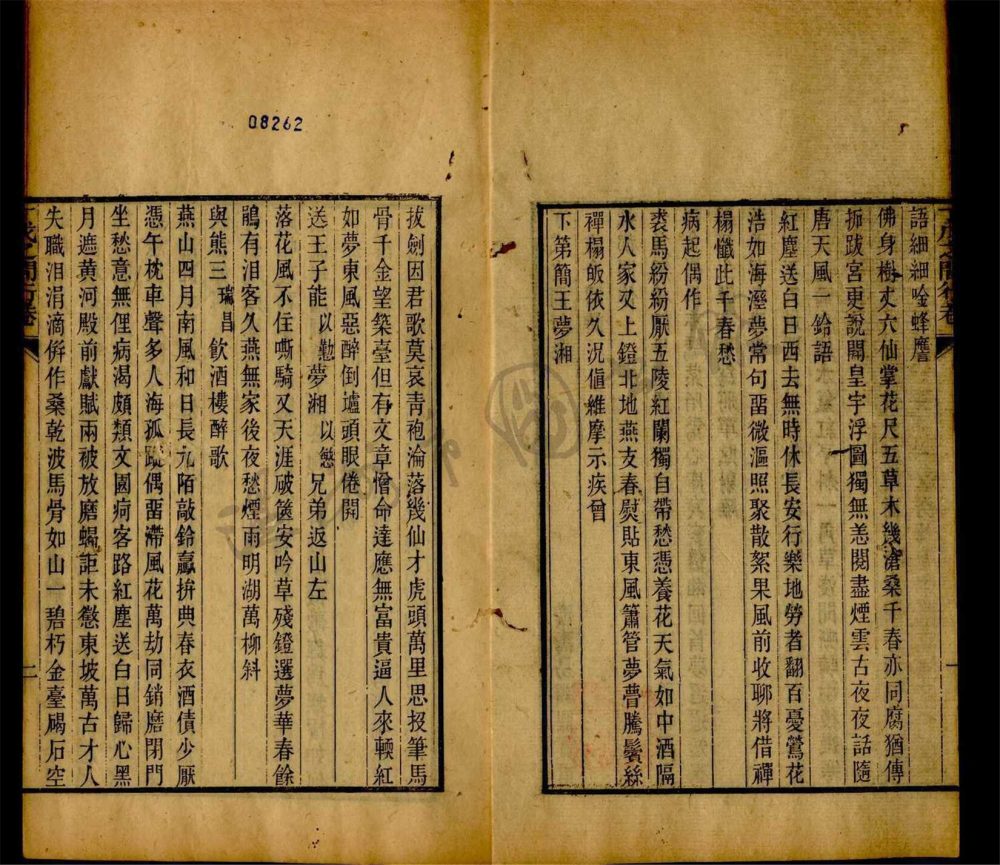 語細細唫蜂衙
佛身樹丈六仙掌花尺五草木幾滄桑千春亦同腐猶傳
跋宮更說開皇宇浮圖獨無恙閱盡煙雲古夜夜話隨
唐天風一鈴語
紅塵送白日西去無時休長安行樂地勞者翻百憂鶯花
浩如海溼夢常句畱微漚照聚散絮果風前收聊將借禪
榻懺此千春愁
病起偶作
裘馬紛紛厭五陵紅闌獨自帶愁憑養花天氣如中酒隔
水人家又上鐙北地燕支春熨貼東風簫管夢瞢騰鬢絲
禪榻皈依久況値維摩示疾曾
下第簡王夢湘
拔劍因君歌莫哀青袍淪落幾仙才虎頭萬里思投筆馬
骨千金望築臺但有文章憎命達應無富貴逼人來輭紅
如夢東風惡醉倒壚頭眼倦開
送王子能以懃夢湘以慜兄弟返山左
落花風不住嘶騎又天涯破篋安吟草殘鐙選夢華春餘
鵑有淚客久燕無家後夜愁煙雨明湖萬柳斜
與熊三瑞昌飮酒樓醉歌
燕山四月南風和日長九陌敲鈴驘拚典春衣酒債少厭
憑午枕車聲多人海孤蹤偶畱滯風花萬劫同銷磨閉門
坐愁意無俚病渴頗類文園疴客路紅塵送白日歸心黑
月遮黃河殿前獻賦兩被放磨蝎詎未憖東坡萬古才人
失職淚涓滴倂作桑乾波馬骨如山一碧朽金臺碣石空
08262